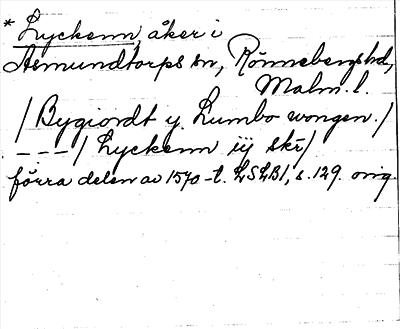 * Lyckenn, åker i
Asmundtorps sn, Rönnebergs hd,
Malm. l.
/ Bygiordt y Lumbo wongen. /
- - - / Lyckenn iij skr /
förra delen av 1570-t. LSLB1, s. 129. orig.